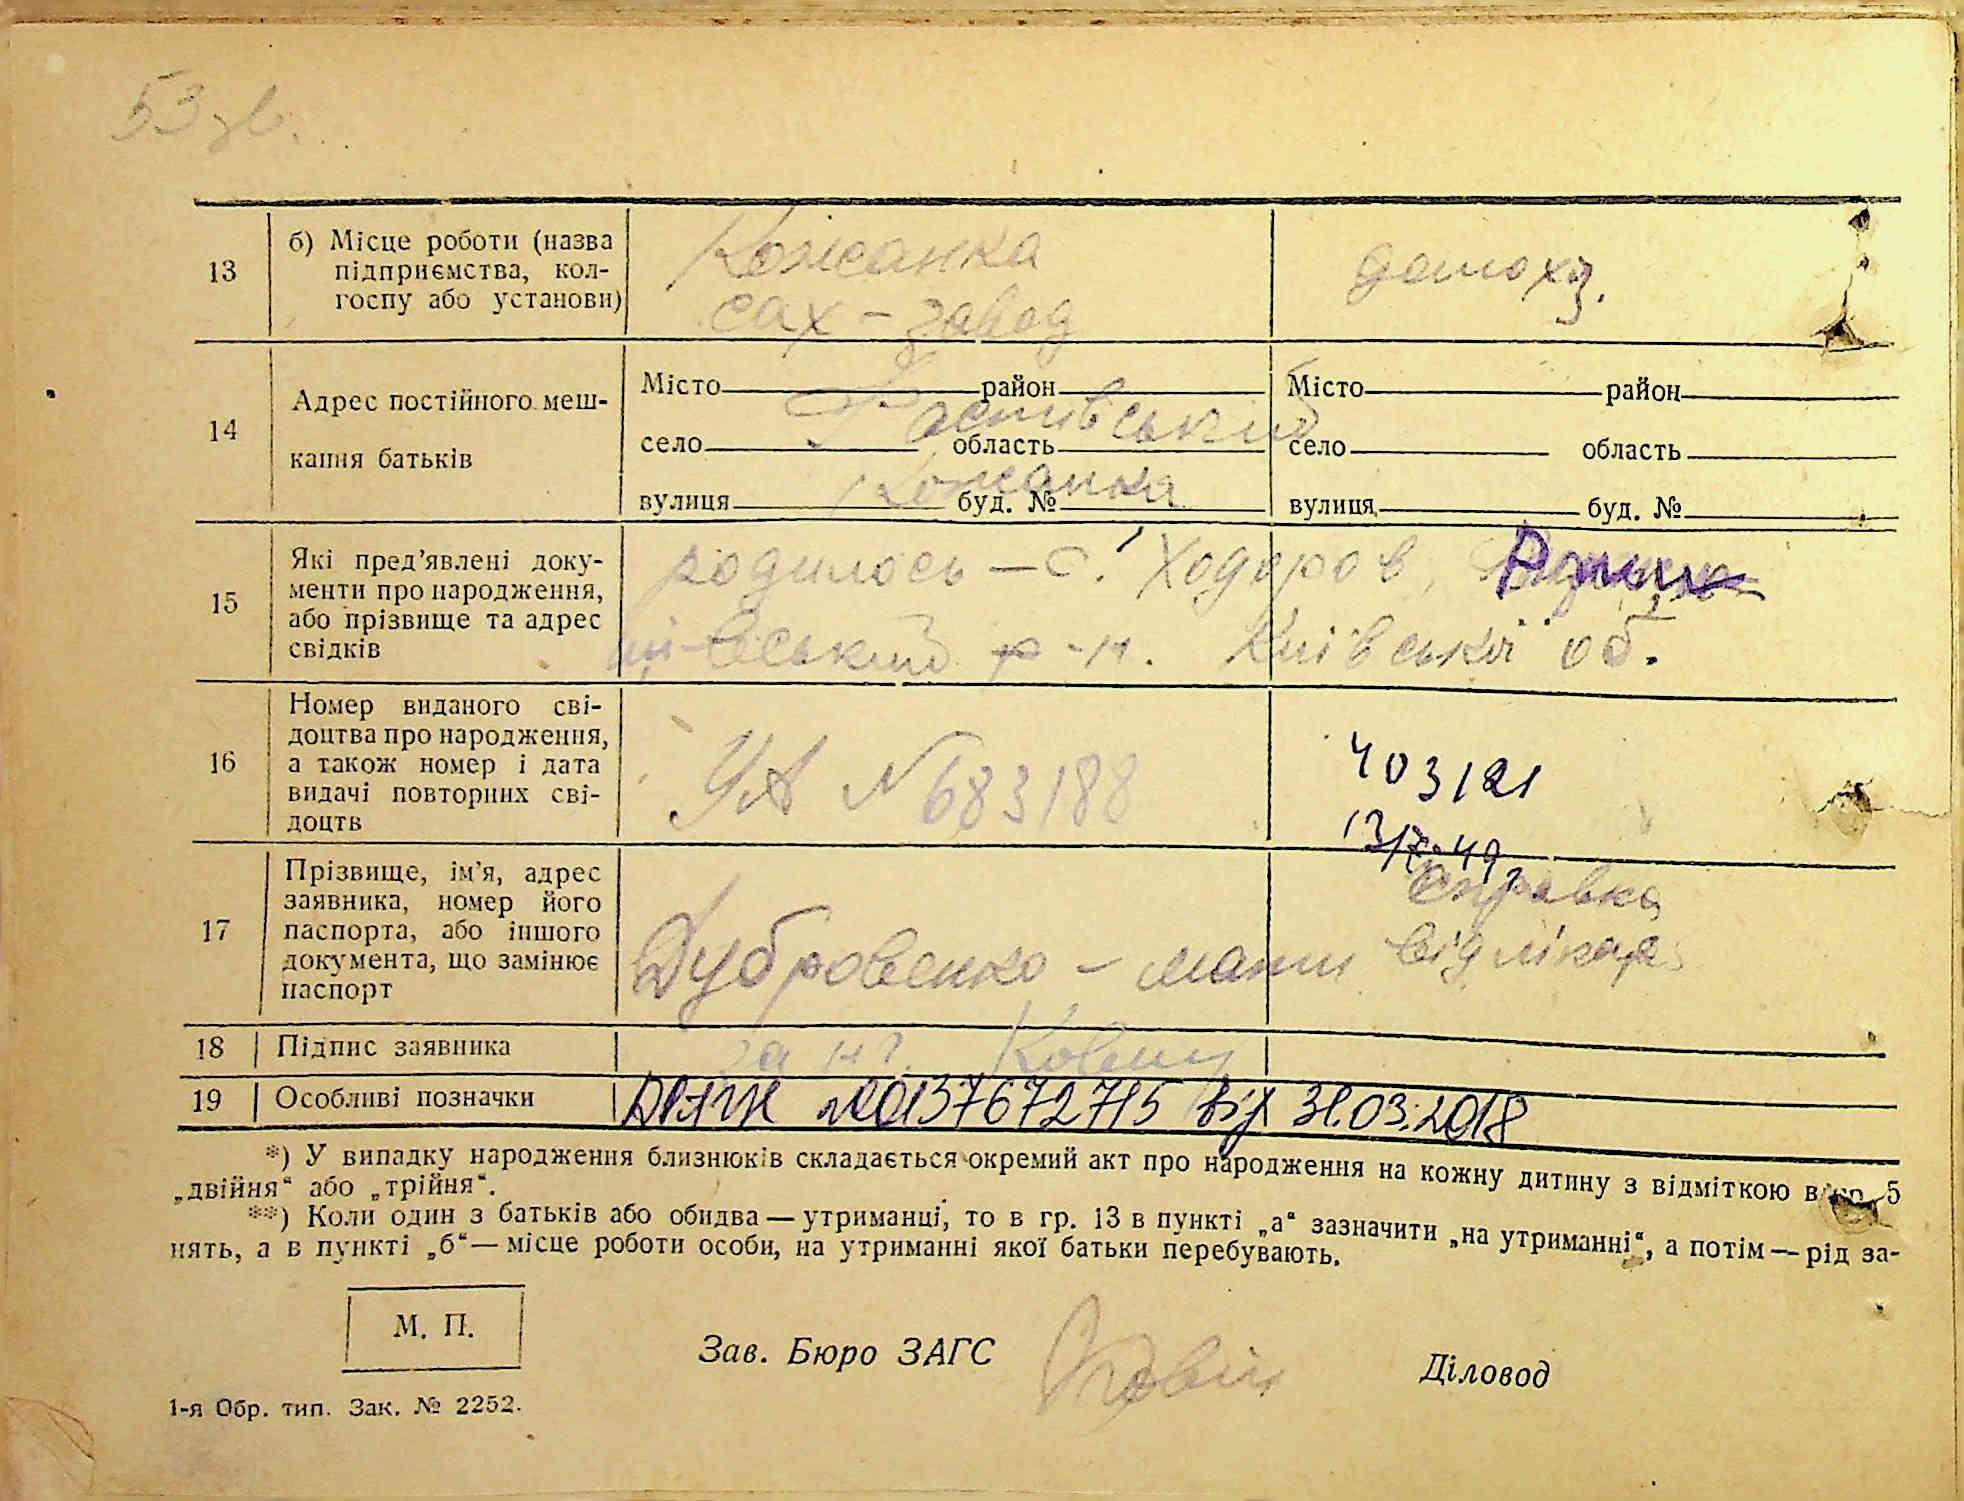 53 зв.
13 б) Місце роботи (назва підприємства, колгоспу або установи)
Кожанка
сах-завод
домохоз.
14 Адрес постійного мешкання батьків
Місто район Місто район
Фастівський
село область село область
Кожанка
вулиця буд. № вулиця буд. №
15 Які пред’явлені документи про народження, або прізвище та адрес свідків
родилось – с. Ходоров,
р-н. Київської об.
16 Номер виданого свідоцтва про народження, а також номер і дата видачі повторних свідоцтв
УА № 683188
403121
13/X-49
17 Прізвище, ім’я, адрес заявника, номер його паспорта, або іншого документа, що замінює паспорт
справка
Дубровенко – мати від лікаря
18 Підпис заявника
за н.
19 Особливі позначки
ДРАЦС №00137672715 від 31.03.2018
*) У випадку народження близнюків складається окремий акт про народження на кожну дитину з відміткою в гр. 5
„двійня“ або „трійня“.
**) Коли один з батьків або обидва — утриманці, то в гр. 13 в пункті „а“ зазначити „на утриманні“, а потім — рід за-
нять, а в пункті „б“ — місце роботи особи, на утриманні якої батьки перебувають.
М. П.
Зав. Бюро ЗАГС
Діловод
1-я Обр. тип. Зак. № 2252.